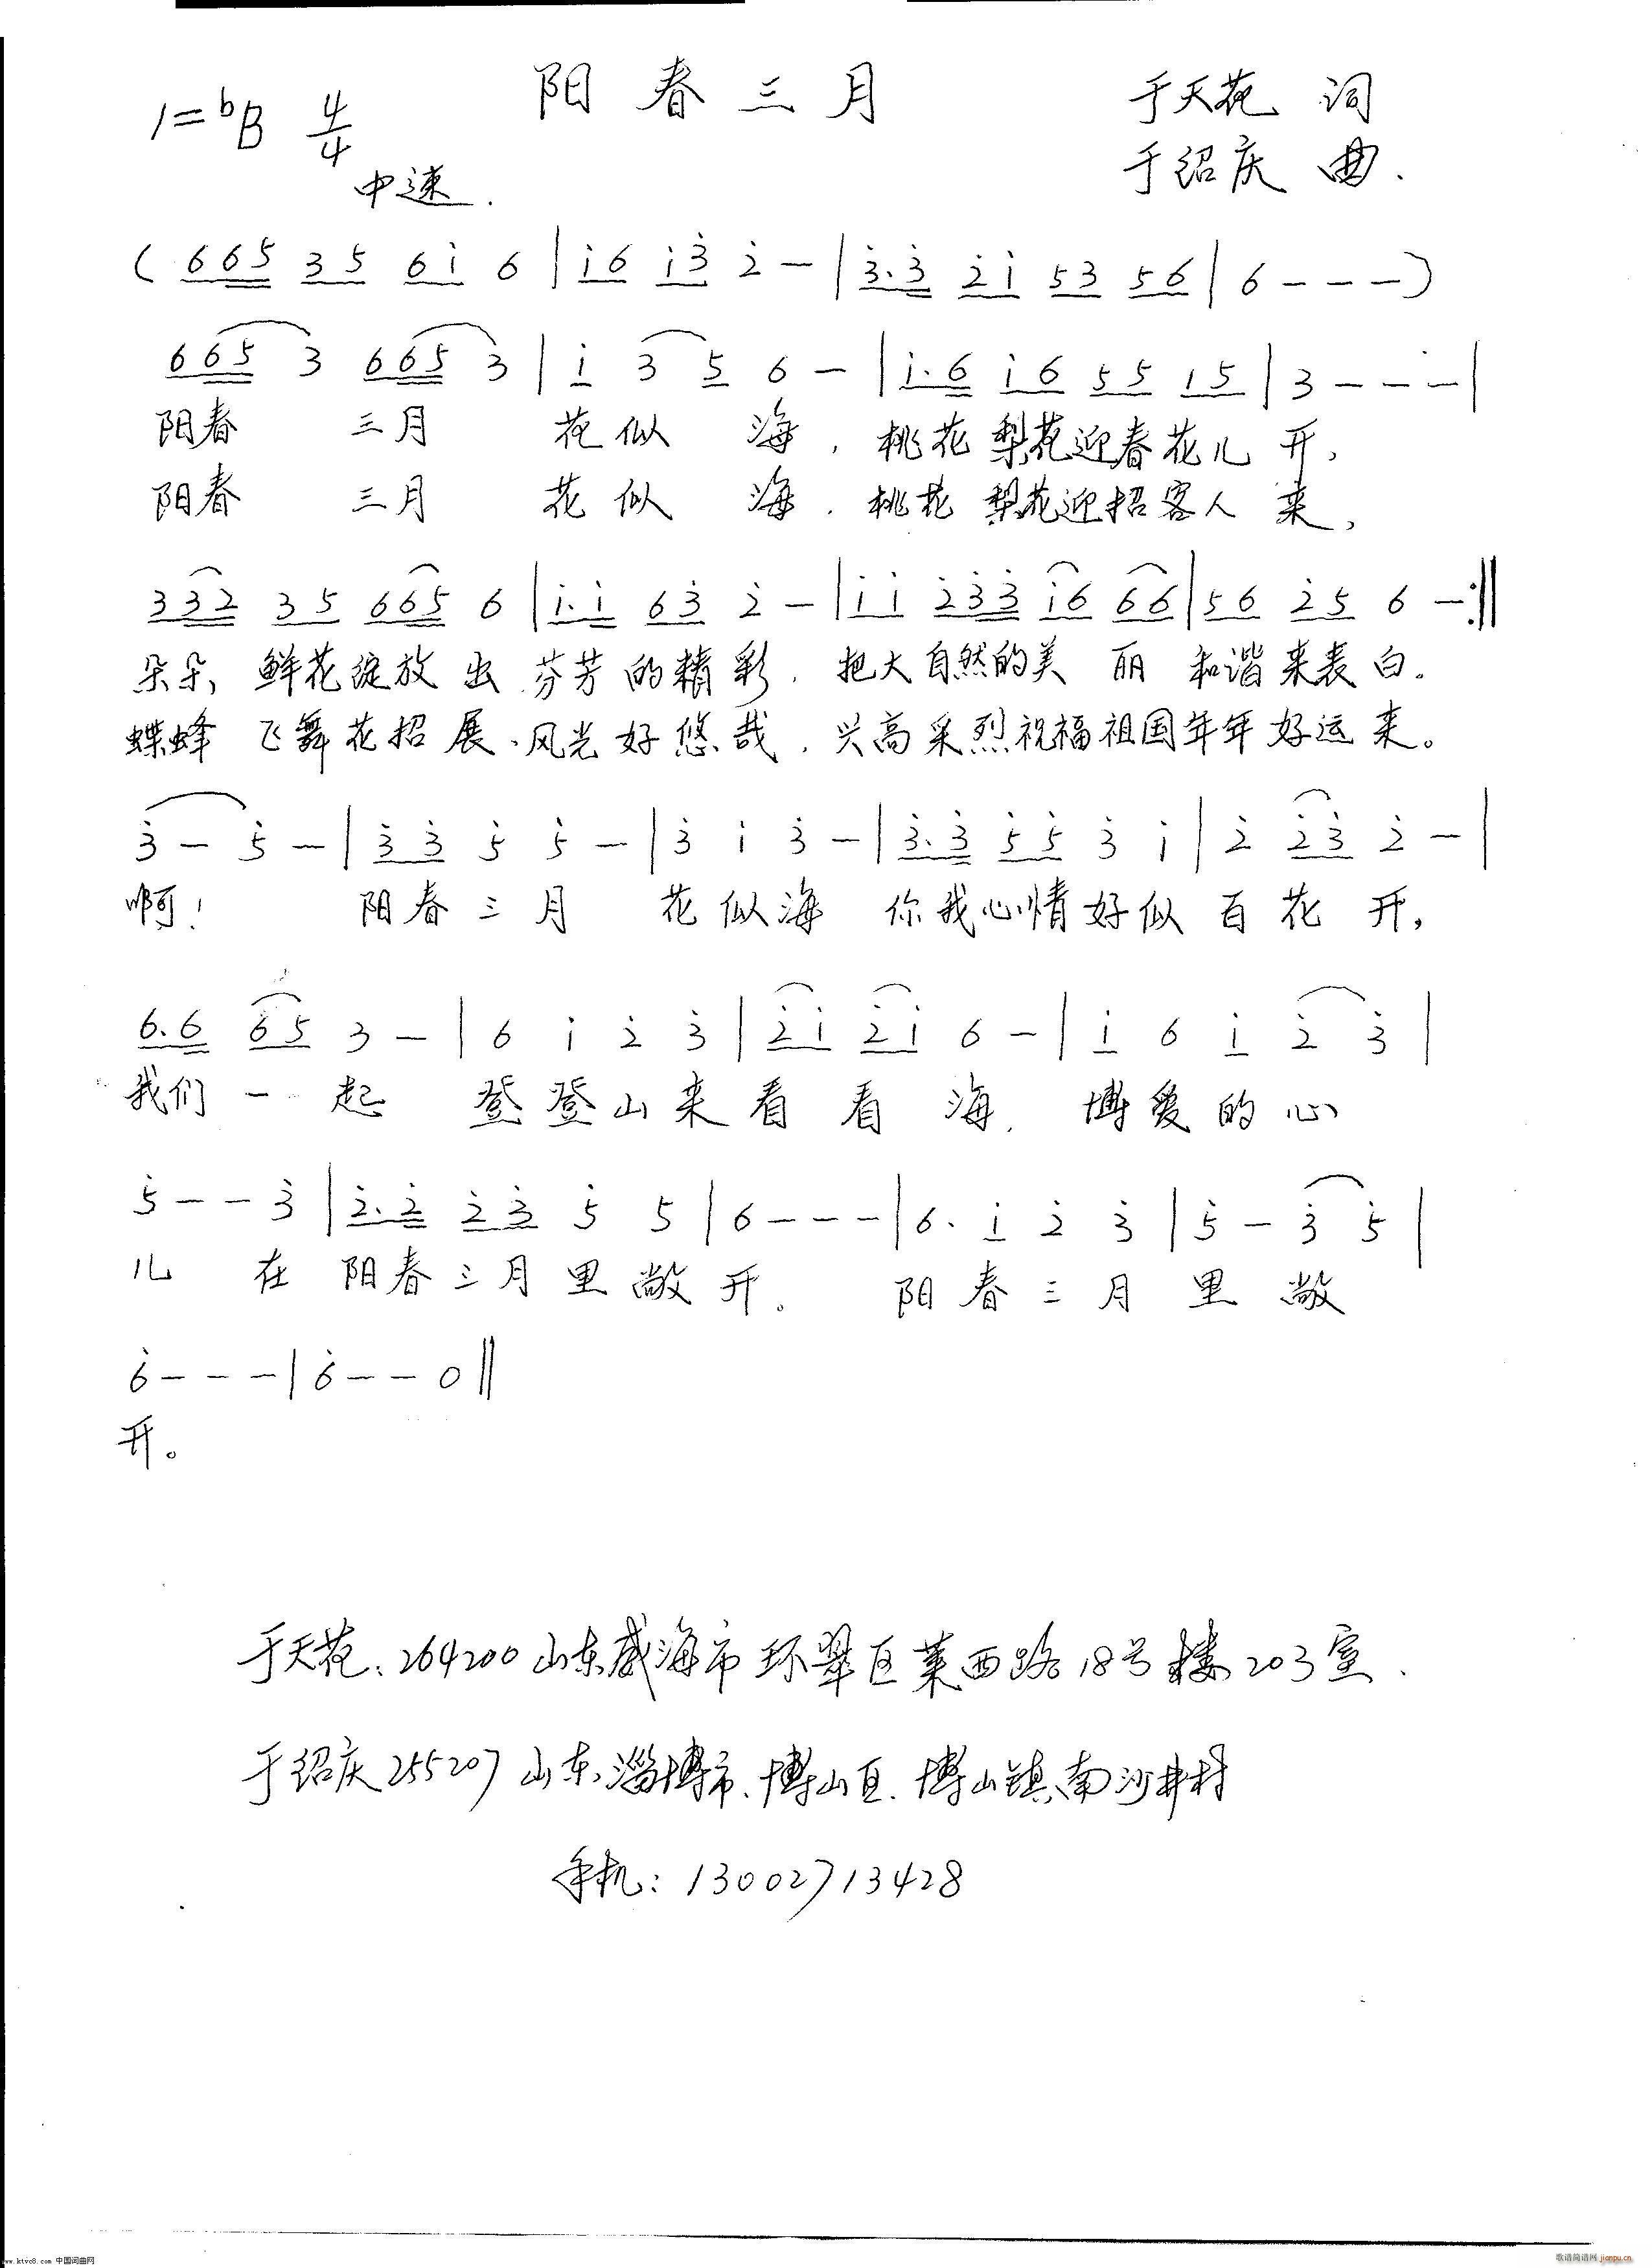 阳春三月
1=bB 4/4
于天花 词
中速.
于绍庆 曲.
( 665 35 6i 6 | i6 i3 2 — | 3.3 2i 53 56 | 6 - - - )
665 3 665 3 | i 3 5 6 — | i.6 i6 55 15 | 3 - - - |
阳春 三月 花似 海，桃花梨花迎春花儿 开，
阳春 三月 花似 海．桃花梨花迎招客人 来，
332 35 665 6 | i.i 63 2 — | ii 233 i6 66 | 56 25 6 — :||
朵朵 鲜花绽放出 芬芳的精彩．把大自然的美 丽 和谐来表白。
蝶蜂 飞舞花招展、风光好悠哉．兴高采烈祝福祖国年年好运来。
3 — 5 — | 33 5 5 — | 3 i 3 — | 3.3 55 3 i | 2 23 2 — |
啊！ 阳春三月 花似海 你我心情好似百花 开，
6.6 65 3 — | 6 i 2 3 | 2i 2i 6 — | i 6 i 2 3 |
我们 一 起 登登山来看 看 海． 博爱的心
5 - - 3 | 2.2 23 5 5 | 6 - - - | 6. i 2 3 | 5 — 3 5 |
儿 在 阳春三月里敞开。 阳春三月 里 敞
6 - - - | 6 - - 0 ||
开。
于天花：264200山东威海市环翠区莱西路18号楼203室．
于绍庆255207山东、淄博市、博山区．博山镇南沙井村
手机：13002713428
www.ktvc8.com 中国词曲网
歌谱简谱网 jianpu.cn